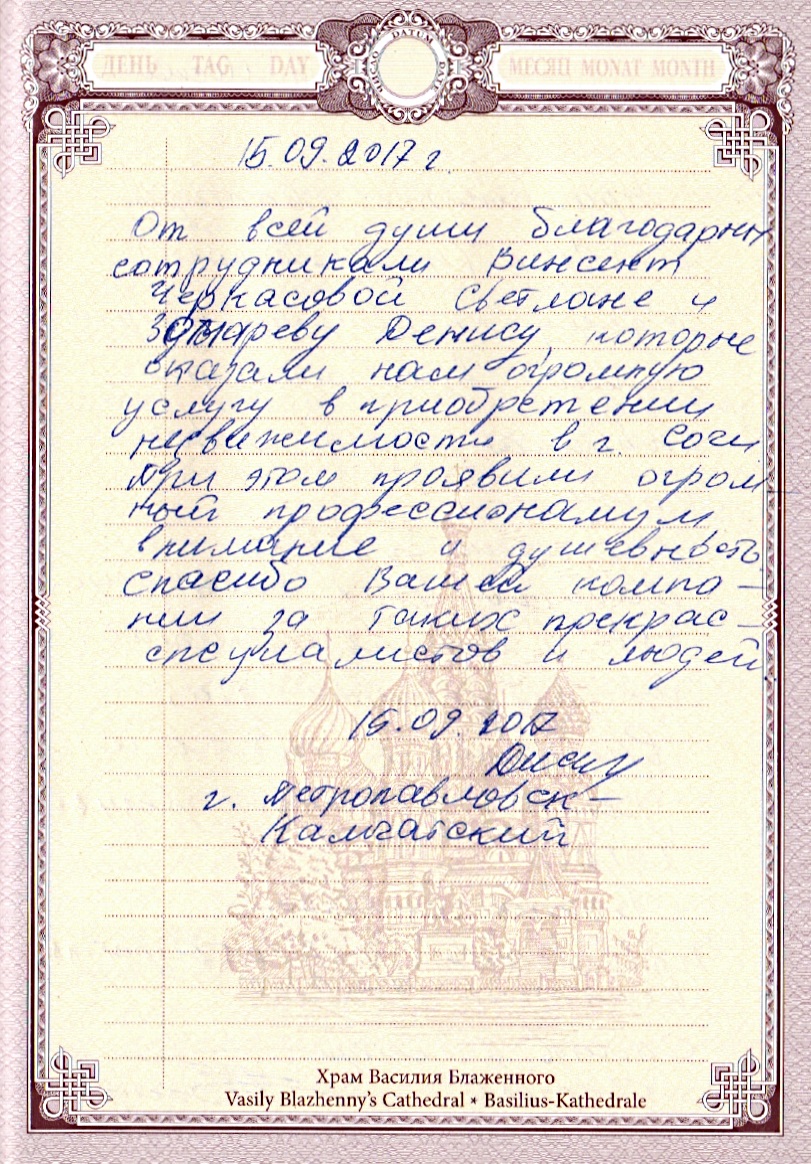 ДЕНЬ TAG DAY
DATUM
МЕСЯЦ MONAT MONTH
15.09.2017 г.
От всей души благодарим
сотрудникали Винсент
Черкасовой Светлане и
Денису, которые
оказали нам огромную
услугу в приобретении
недвижимости в г. Сочи.
При этом проявили огром
ный профессионализм,
внимание и душевность.
Спасибо Вашей компа-
нии за таких прекрас-
специалистов и людей.
15.09.2017
г. Петропавловск-
Камчатский
Храм Василия Блаженного
Vasily Blazhenny's Cathedral * Basilius-Kathedrale